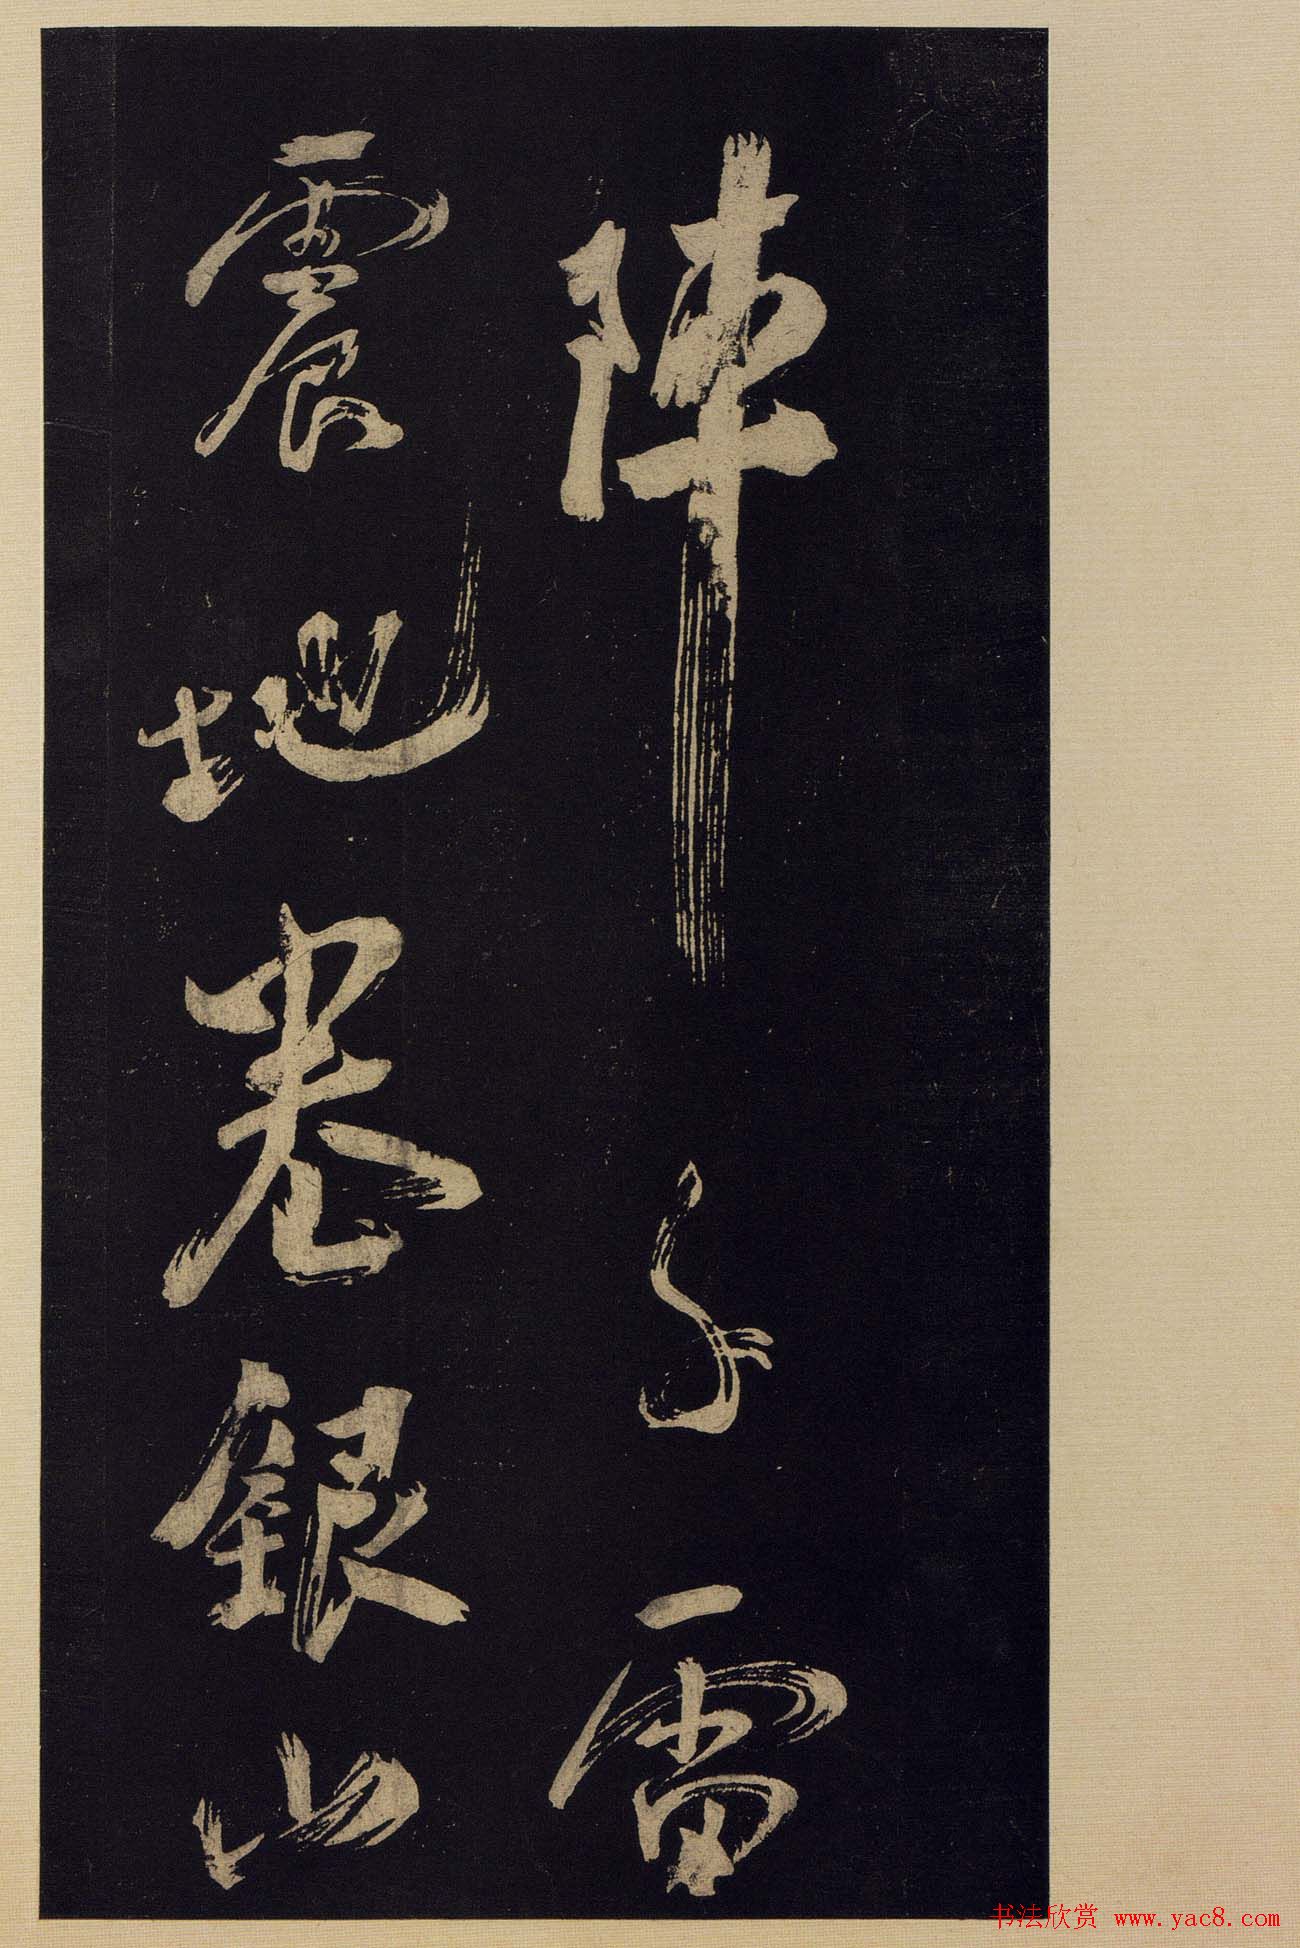 陣千雷
震地卷銀山
书法欣赏 www.yac8.com